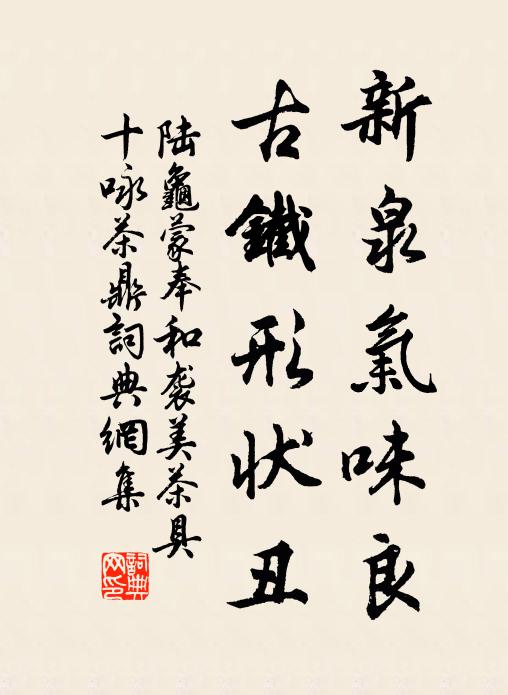 新泉氣味良
古鐵形状丑
陆龜蒙奉和袭美茶具
十咏茶鼎詞典網集
詞典
网印